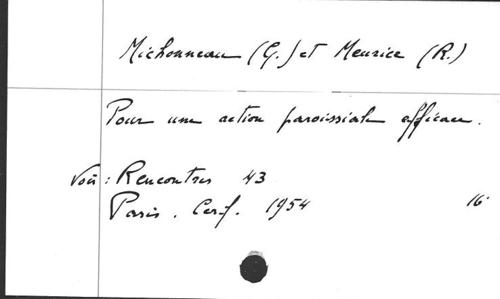 Michonneau (G.) et Meurice (R.)
Pour une action paroissiale efficace.
Voir : Rencontres 43
Paris. Cerf. 1954 16°